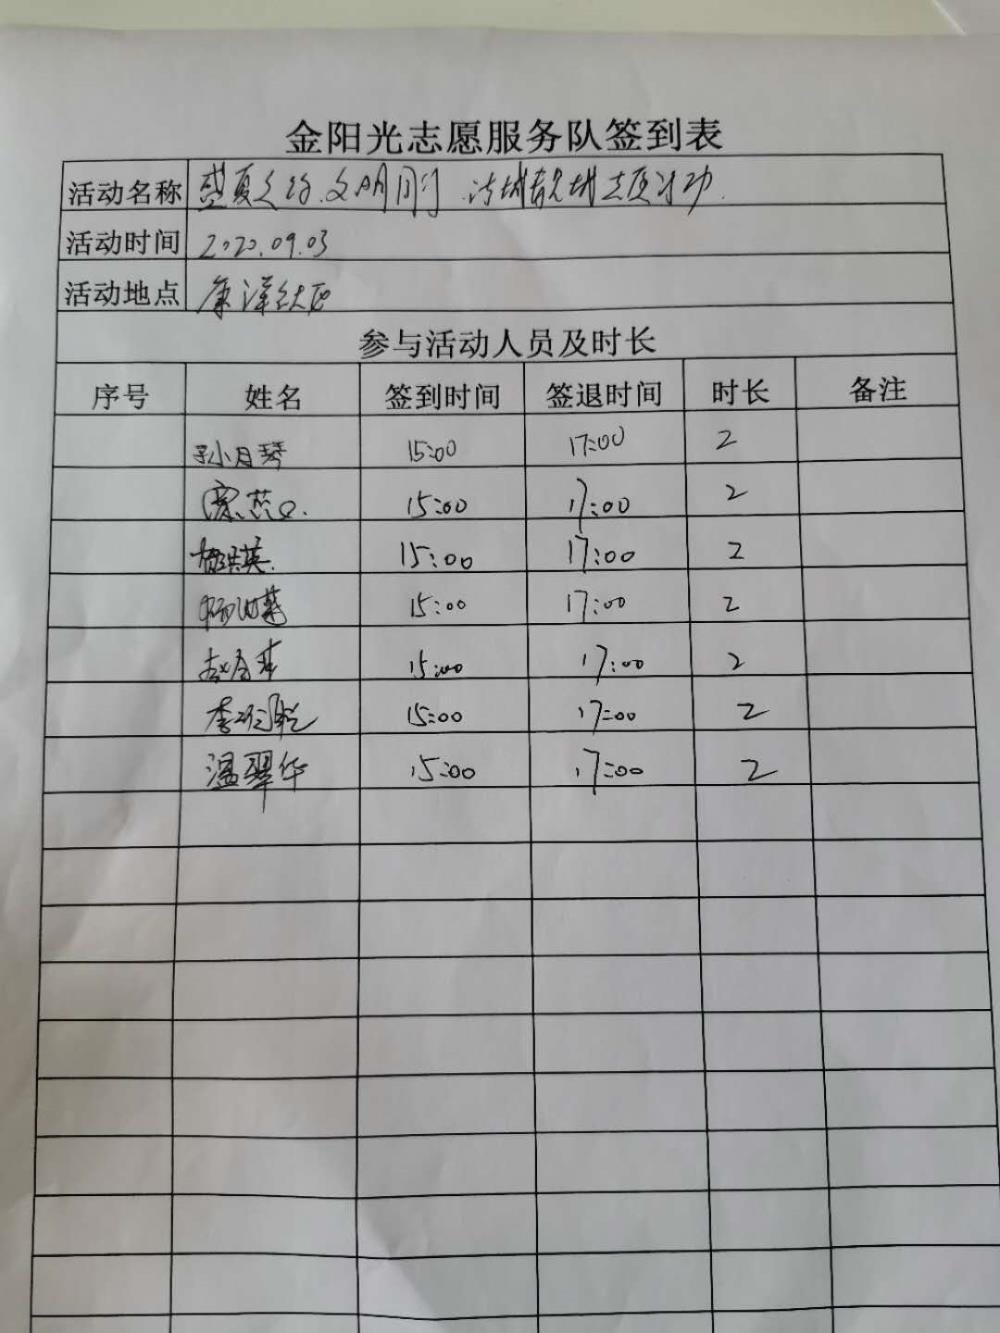 金阳光志愿服务队签到表
活动名称 盛夏之约.文明同行
活动时间 2020.09.03
活动地点 康泽社区
参与活动人员及时长
序号 姓名 签到时间 签退时间 时长 备注
孙月琴 15:00 17:00 2
15:00 17:00 2
15:00 17:00 2
15:00 17:00 2
15:00 17:00 2
15:00 17:00 2
温翠华 15:00 17:00 2